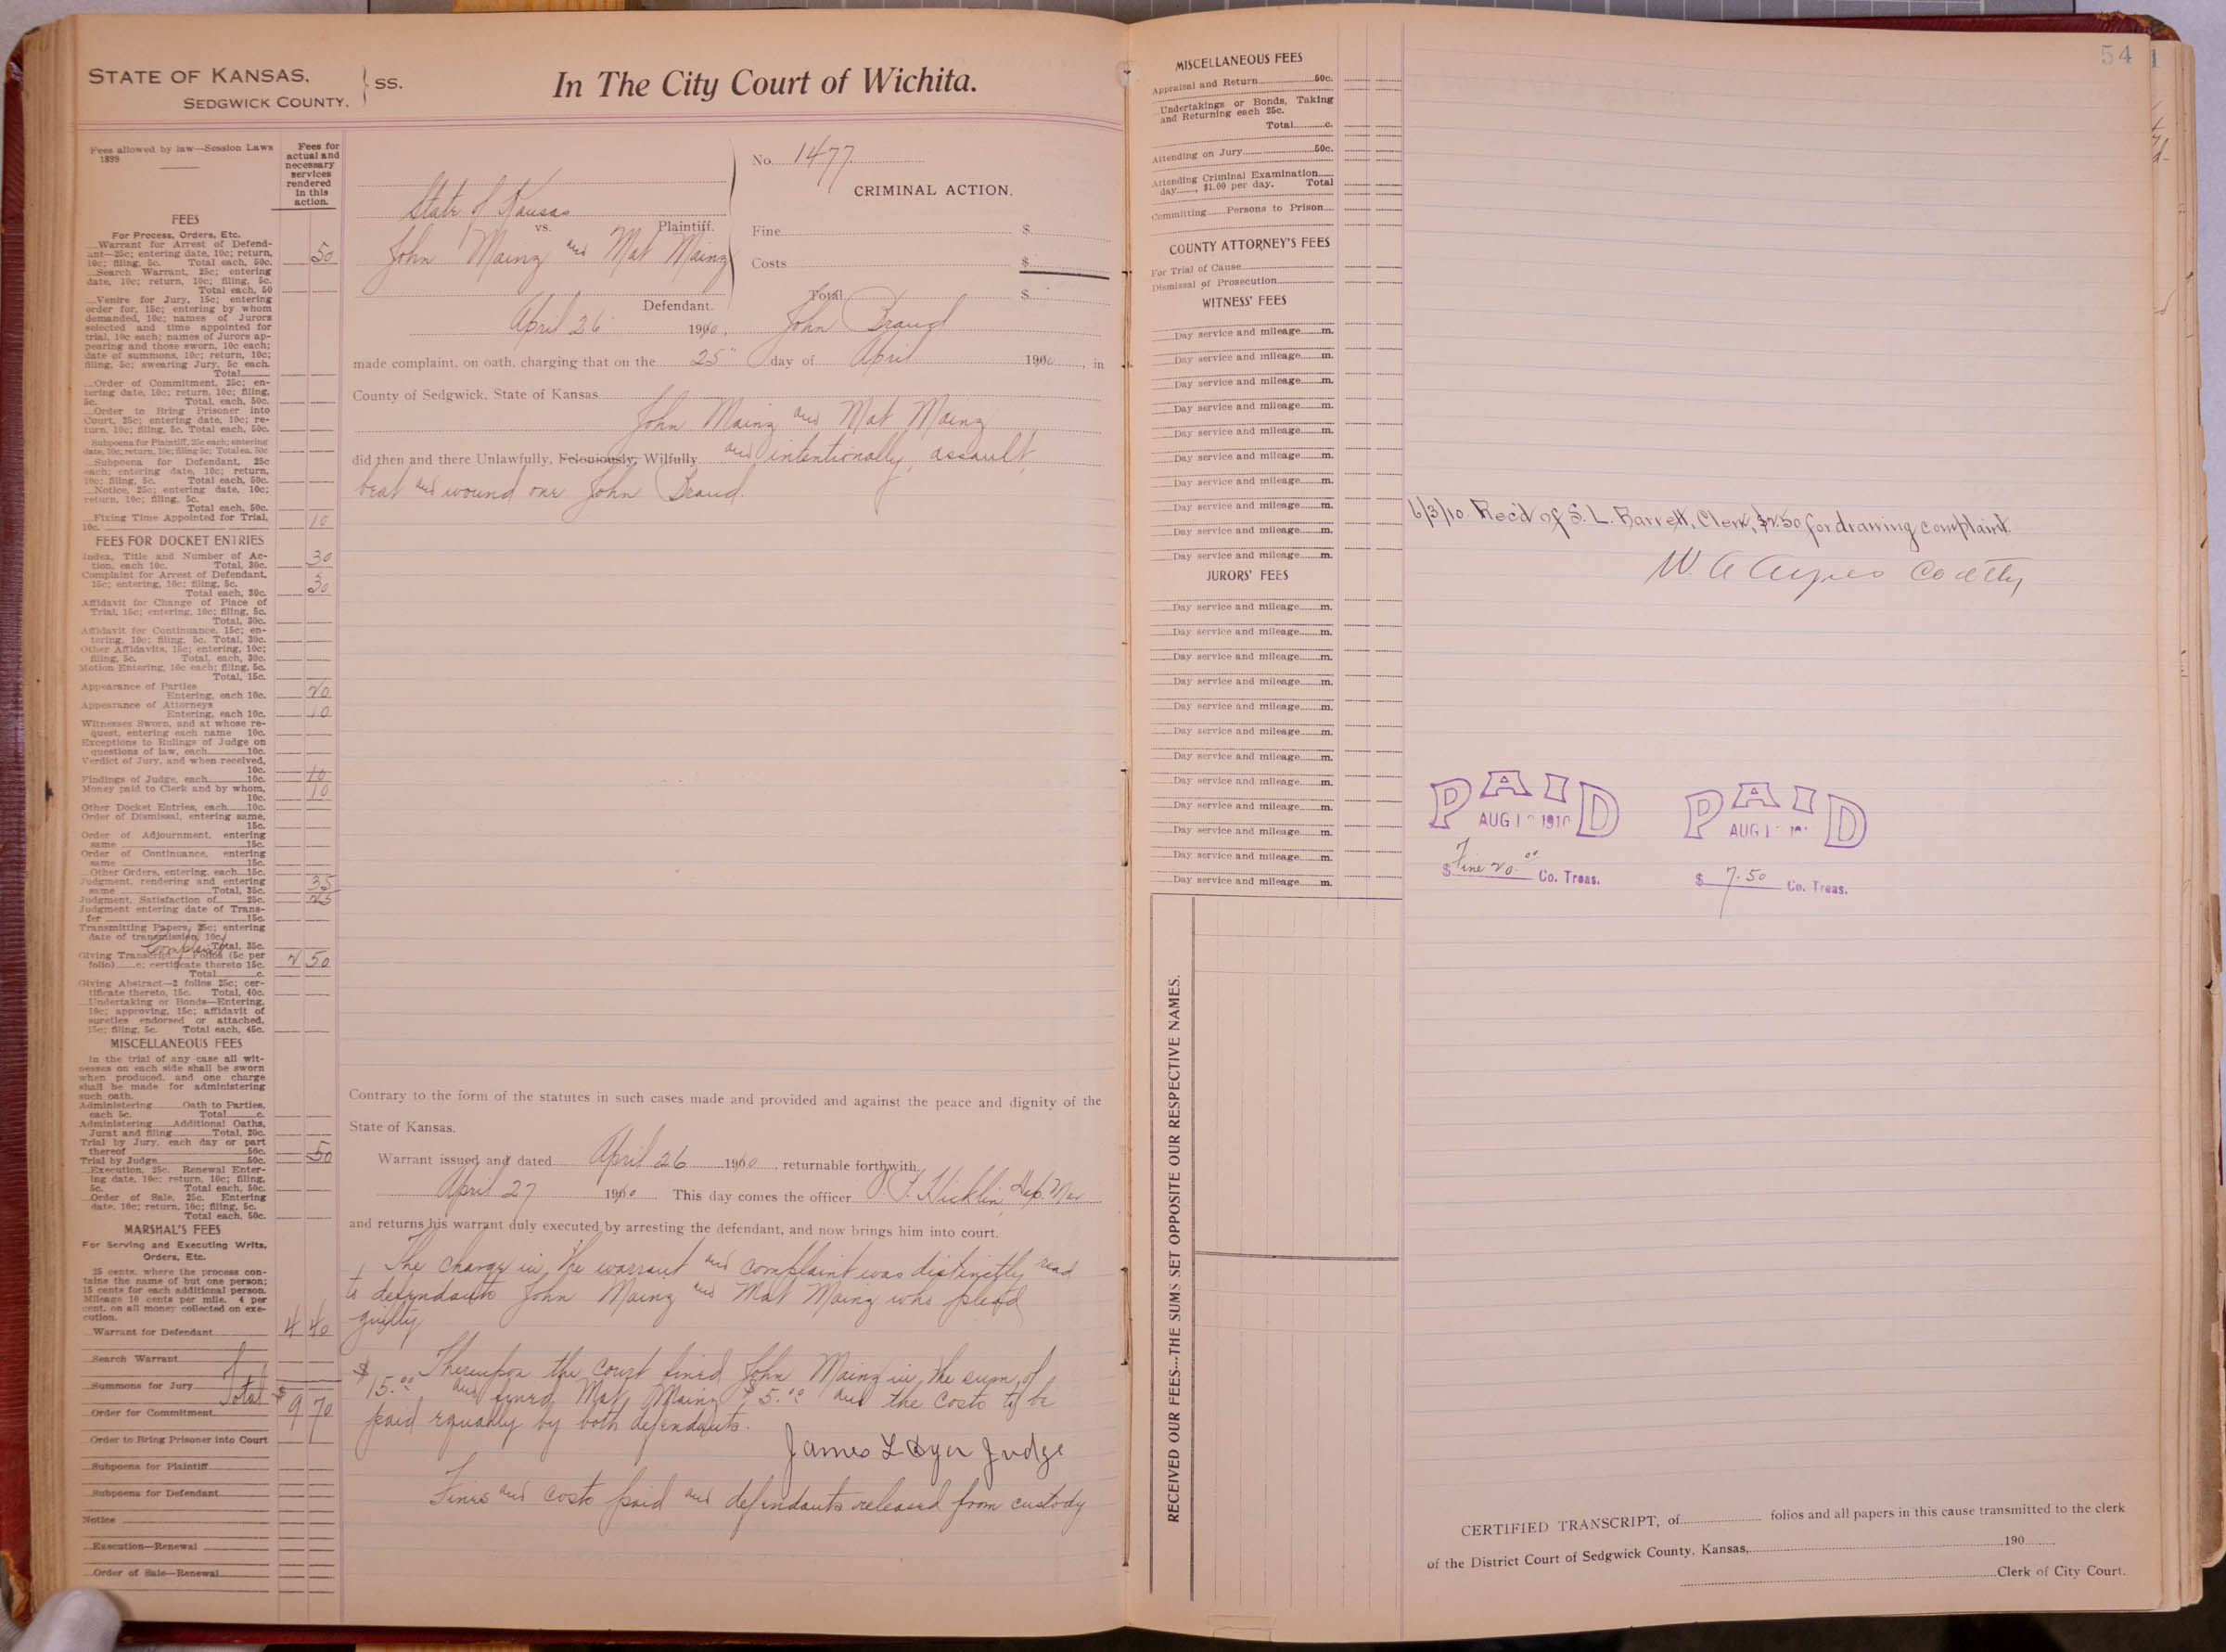 STATE OF KANSAS,
SEDGWICK COUNTY.
} SS.
In The City Court of Wichita.
Fees allowed by law—Session Laws
1899
Fees for
actual and
necessary
services
rendered
in this
action.
FEES
For Process, Orders, Etc.
Warrant for Arrest of Defend-
ant—25c; entering date, 10c; return,
10c; filing, 5c. Total each, 50c. 50
Search Warrant, 25c; entering
date, 10c; return, 10c; filing, 5c.
Total each, 50
Venire for Jury, 15c; entering
order for, 15c; entering by whom
demanded, 10c; names of Jurors
selected and time appointed for
trial, 10c each; names of Jurors ap-
pearing and those sworn, 10c each;
date of summons, 10c; return, 10c;
filing, 5c; swearing Jury, 5c each.
Total
Order of Commitment, 25c; en-
tering date, 10c; return, 10c; filing,
5c. Total, each, 50c.
Order to Bring Prisoner into
Court, 25c; entering date, 10c; re-
turn, 10c; filing, 5c. Total each, 50c.
Subpoena for Plaintiff, 25c each; entering
date, 10c; return, 10c; filing 5c; Total ea. 50c
Subpoena for Defendant, 25c
each; entering date, 10c; return,
10c; filing, 5c. Total each, 50c.
Notice, 25c; entering date, 10c;
return, 10c; filing, 5c.
Total each, 50c.
Fixing Time Appointed for Trial,
10c. 10
FEES FOR DOCKET ENTRIES
Index, Title and Number of Ac-
tion, each 10c. Total, 30c. 30
Complaint for Arrest of Defendant,
15c; entering, 10c; filing, 5c.
Total each, 30c. 30
Affidavit for Change of Place of
Trial, 15c; entering, 10c; filing, 5c.
Total, 30c.
Affidavit for Continuance, 15c; en-
tering, 10c; filing, 5c. Total, 30c.
Other Affidavits, 15c; entering, 10c;
filing, 5c. Total, each, 30c.
Motion Entering, 10c each; filing, 5c.
Total, 15c.
Appearance of Parties
Entering, each 10c. 20
Appearance of Attorneys
Entering, each 10c. 10
Witnesses Sworn, and at whose re-
quest, entering each name 10c.
Exceptions to Rulings of Judge on
questions of law, each 10c.
Verdict of Jury, and when received,
10c.
Findings of Judge, each 10c. 10
Money paid to Clerk and by whom,
10c. 10
Other Docket Entries, each 10c.
Order of Dismissal, entering same,
15c.
Order of Adjournment, entering
same 15c.
Order of Continuance, entering
same 15c.
Other Orders, entering, each 15c.
Judgment, rendering and entering
same Total, 35c. 35
Judgment, Satisfaction of 25c. 25
Judgment entering date of Trans-
fer 15c.
Transmitting Papers, 25c; entering
date of transmission, 10c.
Total, 35c.
Complaint
Giving Transcript, Folios (5c per
folio) c; certificate thereto 15c. 2 50
Total c.
Giving Abstract—2 folios 25c; cer-
tificate thereto, 15c. Total, 40c.
Undertaking or Bonds—Entering,
10c; approving, 15c; affidavit of
sureties endorsed or attached,
15c; filing, 5c. Total each, 45c.
MISCELLANEOUS FEES
In the trial of any case all wit-
nesses on each side shall be sworn
when produced, and one charge
shall be made for administering
such oath.
Administering Oath to Parties,
each 5c. Total c.
Administering Additional Oaths,
Jurat and filing Total, 20c.
Trial by Jury, each day or part
thereof 50c.
Trial by Judge 50c. 50
Execution, 25c. Renewal Enter-
ing date, 10c; return, 10c; filing,
5c. Total each, 50c.
Order of Sale, 25c. Entering
date, 10c; return, 10c; filing, 5c.
Total each, 50c.
MARSHAL'S FEES
For Serving and Executing Writs,
Orders, Etc.
25 cents, where the process con-
tains the name of but one person;
15 cents for each additional person.
Mileage 10 cents per mile. 4 per
cent. on all money collected on exe-
cution.
Warrant for Defendant 4 40
Search Warrant
Summons for Jury
Total $9 70
Order for Commitment
Order to Bring Prisoner into Court
Subpoena for Plaintiff
Subpoena for Defendant
Notice
Execution—Renewal
Order of Sale—Renewal
No. 1477
CRIMINAL ACTION.
State of Kansas
Plaintiff.
vs.
John Mainz and Mat Mainz
Defendant.
Fine $
Costs $
Total $
April 26 1910, John Braud
made complaint, on oath, charging that on the 25" day of April 1910, in
County of Sedgwick, State of Kansas
John Mainz and Mat Mainz
did then and there Unlawfully, Feloniously, Wilfully and intentionally, assault,
beat and wound one John Braud.
Contrary to the form of the statutes in such cases made and provided and against the peace and dignity of the
State of Kansas.
Warrant issued and dated April 26 1910, returnable forthwith.
April 27 1910 This day comes the officer J. F. Hicklin, Dep. Mar
and returns his warrant duly executed by arresting the defendant, and now brings him into court.
The charge in the warrant and complaint was distinctly read
to defendants John Mainz and Mat Mainz who plead
guilty
Thereupon the court fined John Mainz in the sum of
$15.00 and fined Mat Mainz $5.00 and the costs to be
paid equally by both defendants.
James L Dyer Judge
Fines and costs paid and defendants released from custody
54
MISCELLANEOUS FEES
Appraisal and Return 50c.
Undertakings or Bonds, Taking
and Returning each 25c.
Total c.
Attending on Jury 50c.
Attending Criminal Examination
day, $1.00 per day. Total
Committing Persons to Prison
COUNTY ATTORNEY'S FEES
For Trial of Cause
Dismissal of Prosecution
WITNESS' FEES
Day service and mileage m.
Day service and mileage m.
Day service and mileage m.
Day service and mileage m.
Day service and mileage m.
Day service and mileage m.
Day service and mileage m.
Day service and mileage m.
Day service and mileage m.
Day service and mileage m.
JURORS' FEES
Day service and mileage m.
Day service and mileage m.
Day service and mileage m.
Day service and mileage m.
Day service and mileage m.
Day service and mileage m.
Day service and mileage m.
Day service and mileage m.
Day service and mileage m.
Day service and mileage m.
Day service and mileage m.
Day service and mileage m.
RECEIVED OUR FEES---THE SUMS SET OPPOSITE OUR RESPECTIVE NAMES.
6/3/10. Recd of S. L. Barrett, Clerk, $2.50 for drawing complaint.
W. A Ayres Co atty
PAID
AUG 1 1910
$ Fine 20.00 Co. Treas.
PAID
AUG 1
$ 7.50 Co. Treas.
CERTIFIED TRANSCRIPT, of folios and all papers in this cause transmitted to the clerk
of the District Court of Sedgwick County, Kansas, 190
Clerk of City Court.